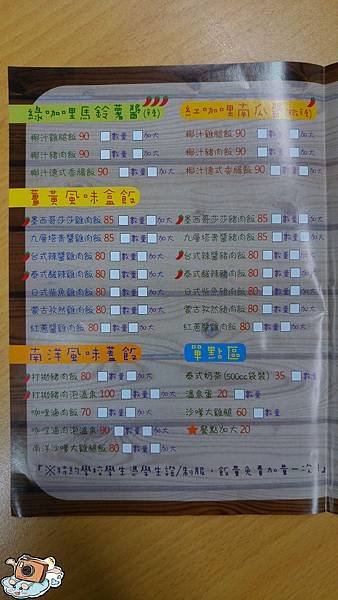 綠咖哩馬鈴薯醬(辛辣)
椰汁雞腿飯 90 數量 加大
椰汁豬肉飯 90 數量 加大
椰汁德式香腸飯 90 數量 加大
紅咖哩南瓜醬
椰汁雞腿飯 90 數量 加大
椰汁豬肉飯 90 數量 加大
椰汁德式香腸飯 90 數量 加大
薑黃風味盒飯
墨西哥莎莎雞肉飯 85 數量 加大
九層塔青醬雞肉飯 85 數量 加大
台式辣醬雞肉飯 80 數量 加大
泰式酸辣雞肉飯 80 數量 加大
日式柴魚雞肉飯 80 數量 加大
蒙古孜然雞肉飯 80 數量 加大
紅蔥醬雞肉飯 80 數量 加大
墨西哥莎莎豬肉飯 85 數量 加大
九層塔青醬豬肉飯 85 數量 加大
台式辣醬豬肉飯 80 數量 加大
泰式酸辣豬肉飯 80 數量 加大
日式柴魚豬肉飯 80 數量 加大
蒙古孜然豬肉飯 80 數量 加大
紅蔥醬豬肉飯 80 數量 加大
南洋風味蓋飯
打拋豬肉飯 80 數量 加大
打拋豬肉泡溫泉 100 數量 加大
咖哩滷肉飯 70 數量 加大
咖哩滷肉泡溫泉 90 數量 加大
南洋沙嗲大雞腿飯 80 數量 加大
單點區
泰式奶茶(500cc袋裝) 35 數量
溫泉蛋 20 數量
沙嗲大雞腿 60 數量
餐點加大20
『※特約學校學生憑學生證/制服，飯量免費加量一次!』